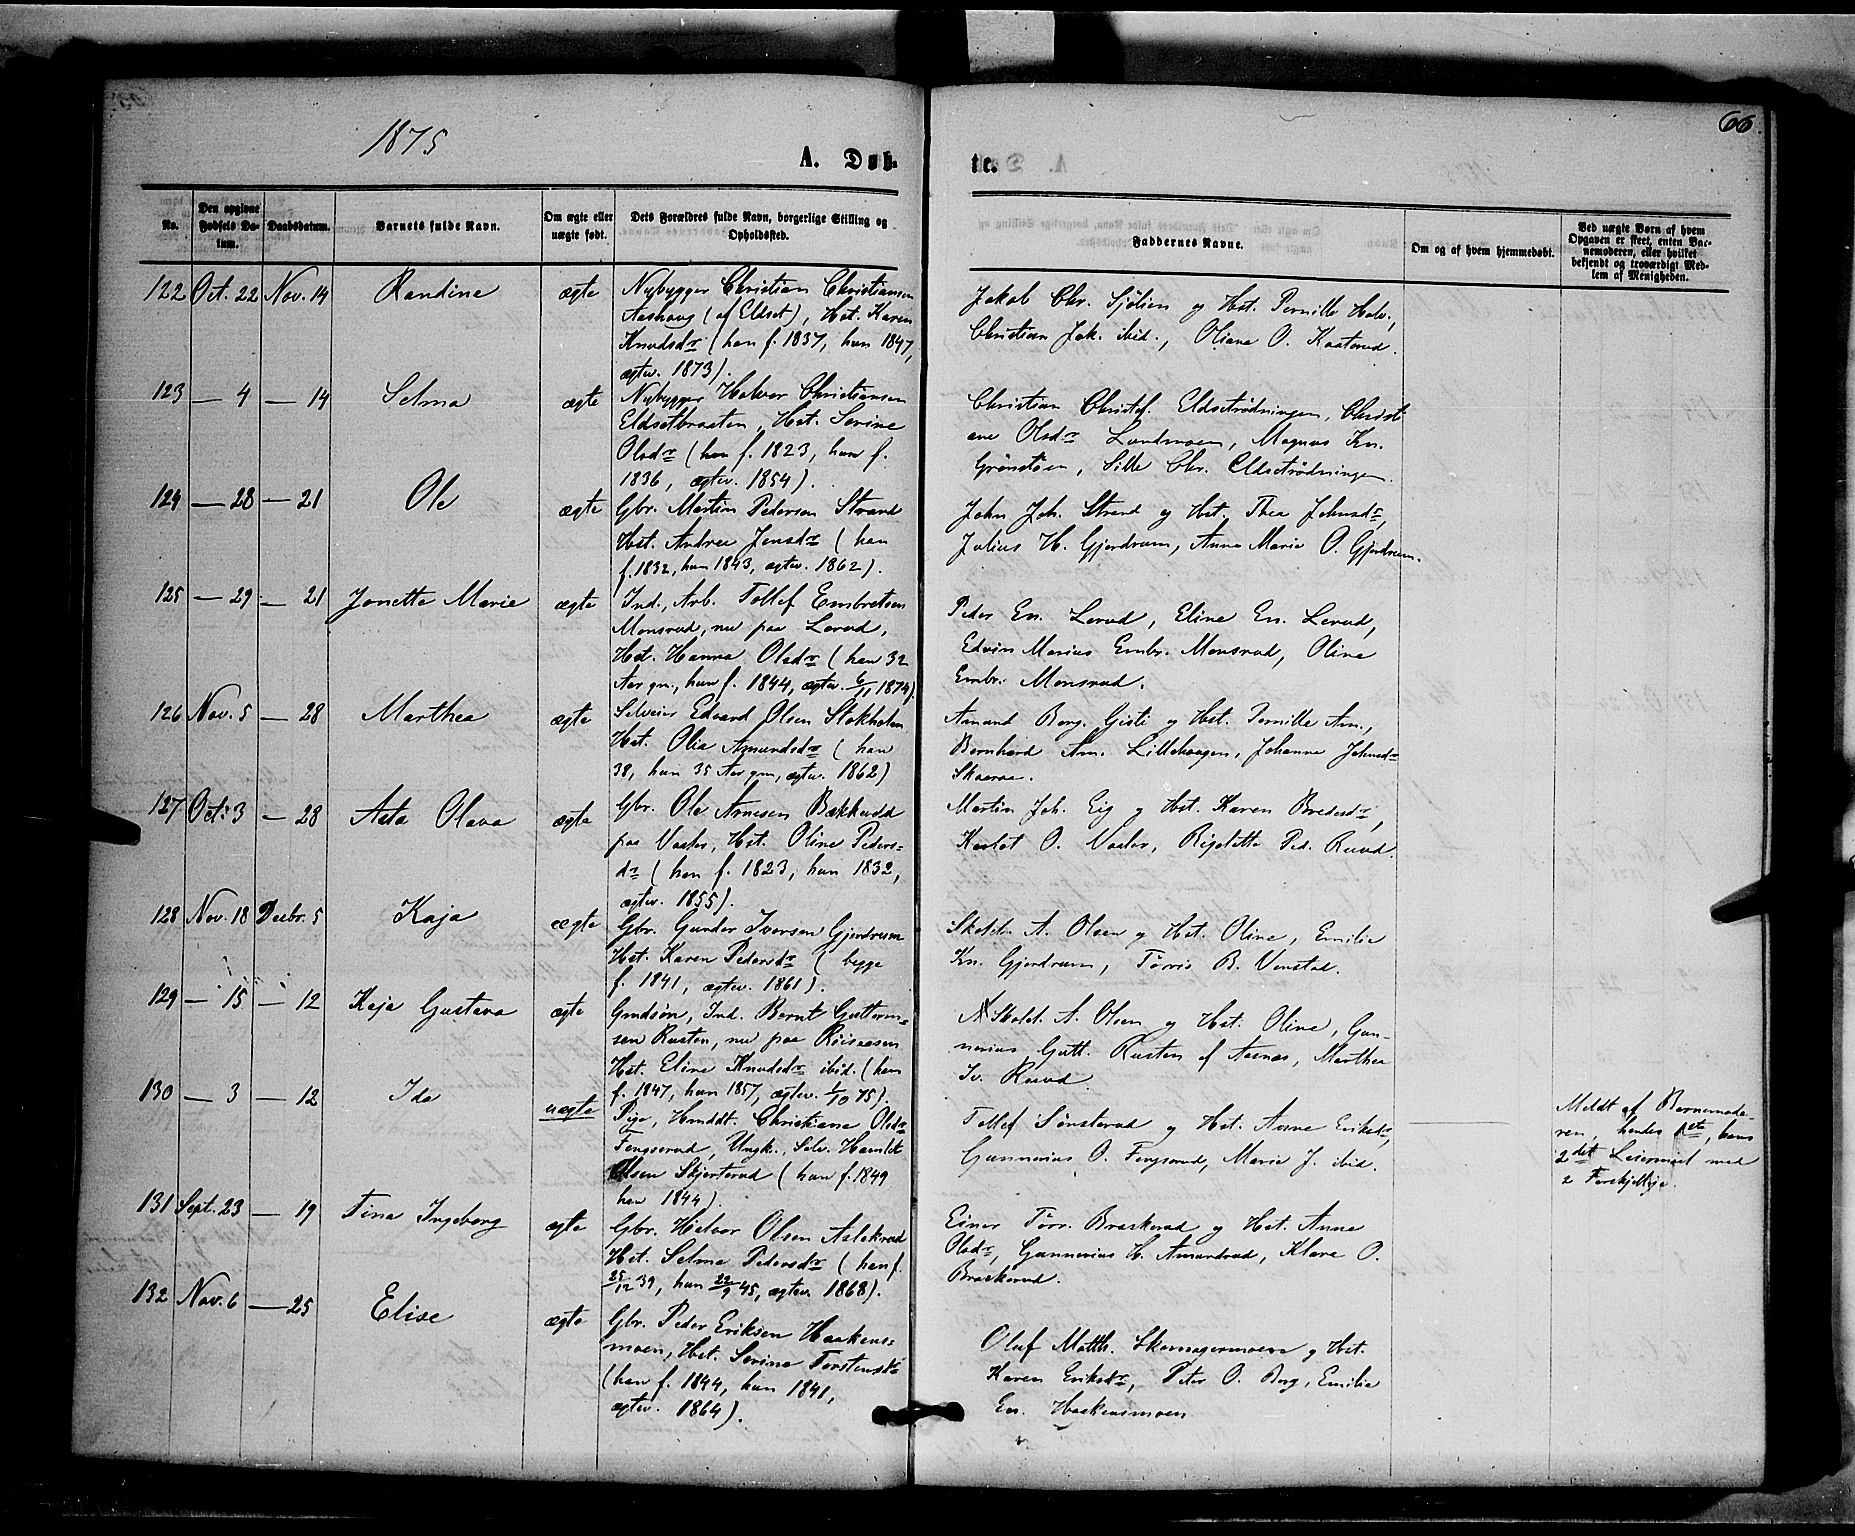 1875
A. Døb-
te.
66.
No.
Den opgivne Fødsels Da-tum.
Daabsdatum.
Barnets fulde Navn.
Om ægte eller uægte født.
Dets Forældres fulde Navn, borgerlige Stilling og Opholdssted.
Faddernes Navne.
Om og af hvem hjemmedøbt.
Ved uægte Børn af hvem Opgaven er skeet, enten Bar-nemoderen, eller hvilket bekjendt og troværdigt Med-lem af Menigheden.
122 Oct. 22 Nov. 14 Randine ægte
Nybygger Christian Christiansen
Aashaug (af Eldset), Hst. Karen
Knudsdr (han f. 1837, hun 1847,
ægtev. 1873).
Jakob Chr. Sjølien og Hst. Pernille Halv.,
Christian Jak. ibid., Oliane O. Kaaterud.
123 — 4 — 14 Selma ægte
Nybygger Halvor Christiansen
Eldsetbraaten, Hst. Serine
Olsdr (han f. 1823, hun f.
1836, ægtev. 1854).
Christian Christof. Eldsetrødningen, Christi
ane Olsdr Lundmoen, Magnus Kn.
Grønstøen, Sille Chr. Eldsetrødningen.
124 — 28 — 21 Ole ægte
Gbr. Martin Pedersen Strand
Hst. Andrea Jensdr (han
f. 1832, hun 1843, ægtev. 1862).
John Joh. Strand og Hst. Thea Johnsdr,
Julius H. Gjerdrum, Anne Marie O. Gjerdrum.
125 — 29 — 21 Jonette Marie ægte
Ind., Arb. Tollef Embretsen
Monsrud, nu paa Lerud,
Hst. Hanna Olsdr (han 32
Aar gm., hun f. 1844, ægtev. 6/11 1874).
Peder En. Lerud, Eline En. Lerud,
Edvin Marius Embr. Monsrud, Oline
Embr. Monsrud.
126 Nov. 5 — 28 Marthea ægte
Selveier Edvard Olsen Stokholm
Hst. Olia Amundsdr (han
38, hun 35 Aar gm, ægtev. 1862)
Amund Borg. Gisti og Hst. Pernille Am.,
Bernhard Am. Lillehaagen, Johanne Johnsdr
Skaarae.
127 Oct. 3 — 28 Asta Olava ægte
Gbr. Ole Arnesen Bækkevold
paa Vaaler, Hst. Oline Peders-
dr (han f. 1823, hun 1832,
ægtev. 1855).
Martin Joh. Eig og Hst. Karen Bredesdr,
Karlot O. Vaaler, Rigolette Ped. Ruud.
128 Nov. 18 Decbr. 5 Kaja ægte
Gbr. Gunder Iversen Gjerdrum
Hst. Karen Pedersdr (begge
f. 1841, ægtev. 1861).
Skold. A. Olsen og Hst. Oline, Emilie
Kn. Gjerdrum, Tørris B. Venstad.
129 — 15 — 12 Kaja Gustava ægte
Gmdsøn, Ind. Bernt Guttorm-
sen Rusten, nu paa Røisaasen
Hst. Eline Knudsdr ibid. (han
f. 1847, hun 1857, ægtev. 1/10 75).
Skold. A. Olsen og Hst. Oline, Gun-
nerius Gutt. Rusten af Aasnæs, Marthea
Iv. Ruud.
130 — 3 — 12 Ida uægte
Pige, Hmddt. Christiane Olsdr
Fengserud, Ungk., Selv. Hamlet
Olsen Skjerterud (han f. 1849
hun 1844).
Tollef Sønsterud og Hst. Anne Eriksdr,
Gunnerius O. Fengserud, Marie J. ibid.
Meldt af Barnemode-
ren, hendes 1ste, hans
2det Leiermaal med
2 Forskjellige.
131 Sept. 23 — 19 Tina Ingeborg ægte
Gbr. Halvor Olsen Aslakrud
Hst. Selma Pedersdr (han f.
25/12 39, hun 22/9 45, ægtev. 1868).
Einer Tørr. Braskerud og Hst. Anne
Olsdr, Gunnerius H. Amundrud, Klara O.
Braskerud.
132 Nov. 6 — 25 Elise ægte
Gbr. Peder Eriksen Haakens-
moen, Hst. Serine Torstensdr
(han f. 1844, hun 1841,
ægtev. 1864).
Oluf Matth. Skarnagermoen og Hst.
Karen Eriksdr, Peter O. Berg, Emilie
En. Haakensmoen